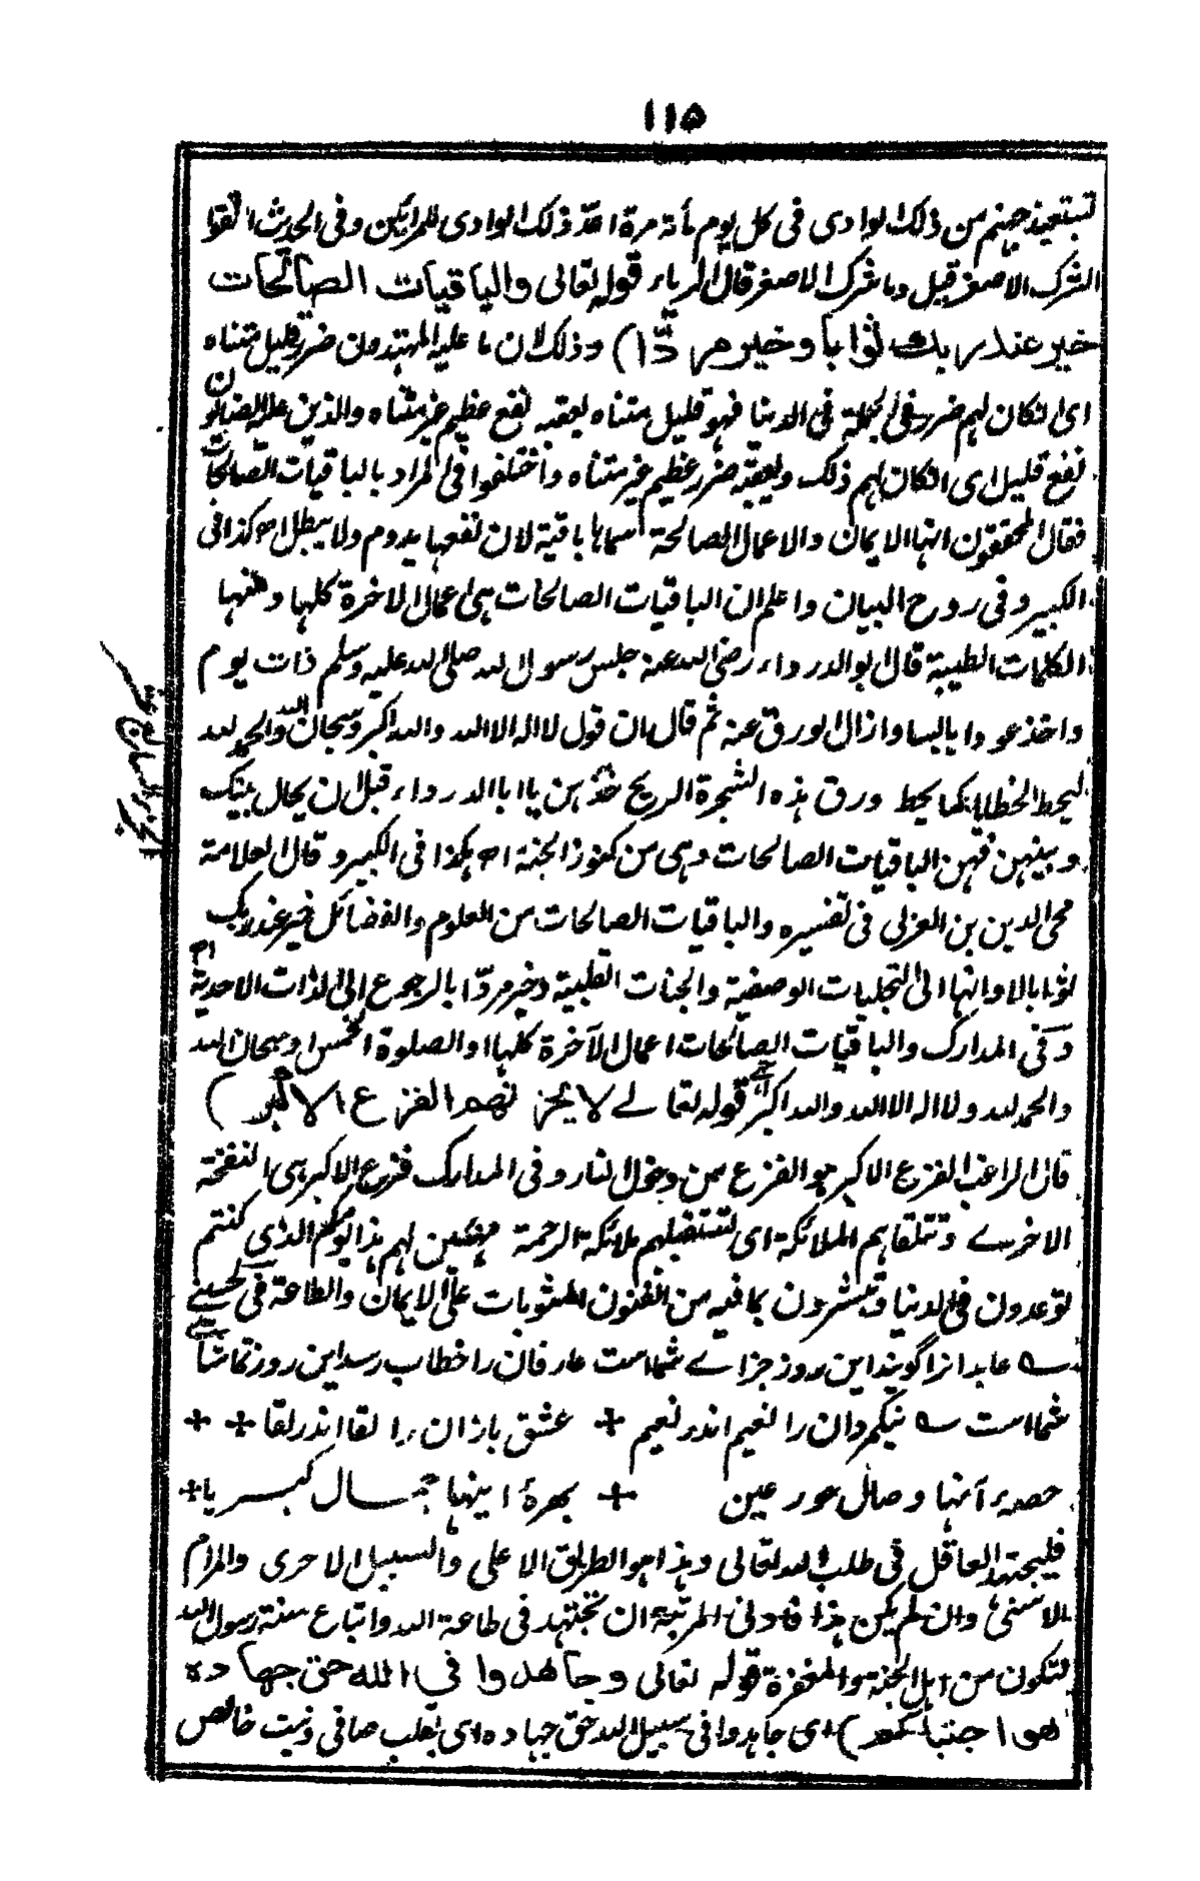 ۱۱۵
تستعيذ جهنم من ذلك الوادى فى كل يوم مأة مرة اعدّ ذلك الوادى للمرائين وفى الحديث اتقوا
الشرك الاصغر قيل وما شرك الاصغر قال الرياء قوله تعالى والباقيات الصالحات
خير عند ربك ثوابا وخير مردّا) وذلك لان ما عليه المهتدون ضرر قليل متناه
اى ان كان لهم ضرر فى الجملة فى الدنيا فهو قليل متناه يعقبه نفع عظيم غير متناه والذين عليه الضالون
نفع قليل اى ان كان لهم ذلك ويعقبه ضرر عظيم غير متناه واختلفوا فى المراد بالباقيات الصالحات
فقال المحققون انها الايمان والاعمال الصالحة اسماها باقية لان نفعها يدوم ولا يبطل اه كذا فى
الكبير وفى روح البيان واعلم ان الباقيات الصالحات هى اعمال الاخرة كلها ومنها
الكلمات الطيبة قال ابو الدرداء رضى الله عنه جلس رسول الله صلى الله عليه وسلم ذات يوم
واخذ عودا يابسا وازال الورق عنه ثم قال ان قول لا اله الا الله والله اكبر وسبحان الله والحمد لله
ليحط الخطايا كما يحط ورق هذه الشجرة الريح خذهن يا ابا الدرداء قبل ان يحال بينك
وبينهن فهن الباقيات الصالحات وهى من كنوز الجنة اه هكذا فى الكبير وقال العلامة
محى الدين بن العربى فى تفسيره والباقيات الصالحات من العلوم والفضائل خير عند ربك
ثوابا لاوانها الى التجليات الوصفية والجنات القلبية وخير مردّا بالرجوع الى الذات الاحدية اه
وفى المدارك والباقيات الصالحات اعمال الآخرة كلها او الصلوة الخمس او سبحان الله
والحمد لله ولا اله الا الله والله اكبر قوله تعالے لا يحزنهم الفزع الاكبر)
قال الراغب الفزع الاكبر هو الفزع من دخول النار وفى المدارك فزع الاكبر هى النفخة
الاخرے وتتلقاهم الملائكة اى تستقبلهم ملائكة الرحمة مهنئين لهم هذا يومكم الذى كنتم
توعدون فى الدنيا وتبشرون بما فيه من الفنون المثوبات على الايمان والطاعة فى الحسينے
؎ عابدانرا گويند اين روز جزاے شماست عارفان را خطاب رسد اين روز تماشاے
شماست ؎ نيكمردان را نعيم اندر نعيم + عشق بازان را لقا اندر لقا + +
حصهء آنها وصال حور عين + بهرهٔ اينها جمال كبريا +
فليجتهد العاقل فى طلب الله تعالى وهذا هو الطريق الاعلى والسبيل الاحرى والمرام
الاسنى وان لم يكن هذا فادنى المرتبة ان تجتهد فى طاعة الله واتباع سنة رسول الله
لتكون من اهل الجنة والمغفرة قوله تعالى وجاهدوا فى الله حق جهاده
هو اجتباكم) اى جاهدوا فى سبيل الله حق جهاده اى بقلب صافى ونيت خالص